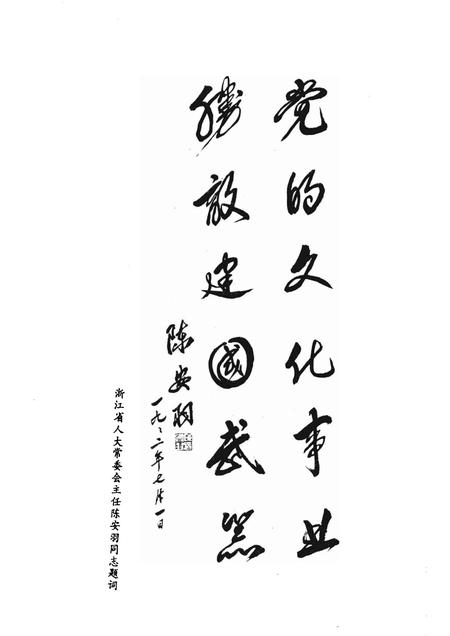 党的文化事业
胜敌建国武器
陈安羽
一九九二年七月一日
浙江省人大常委会主任陈安羽同志题词